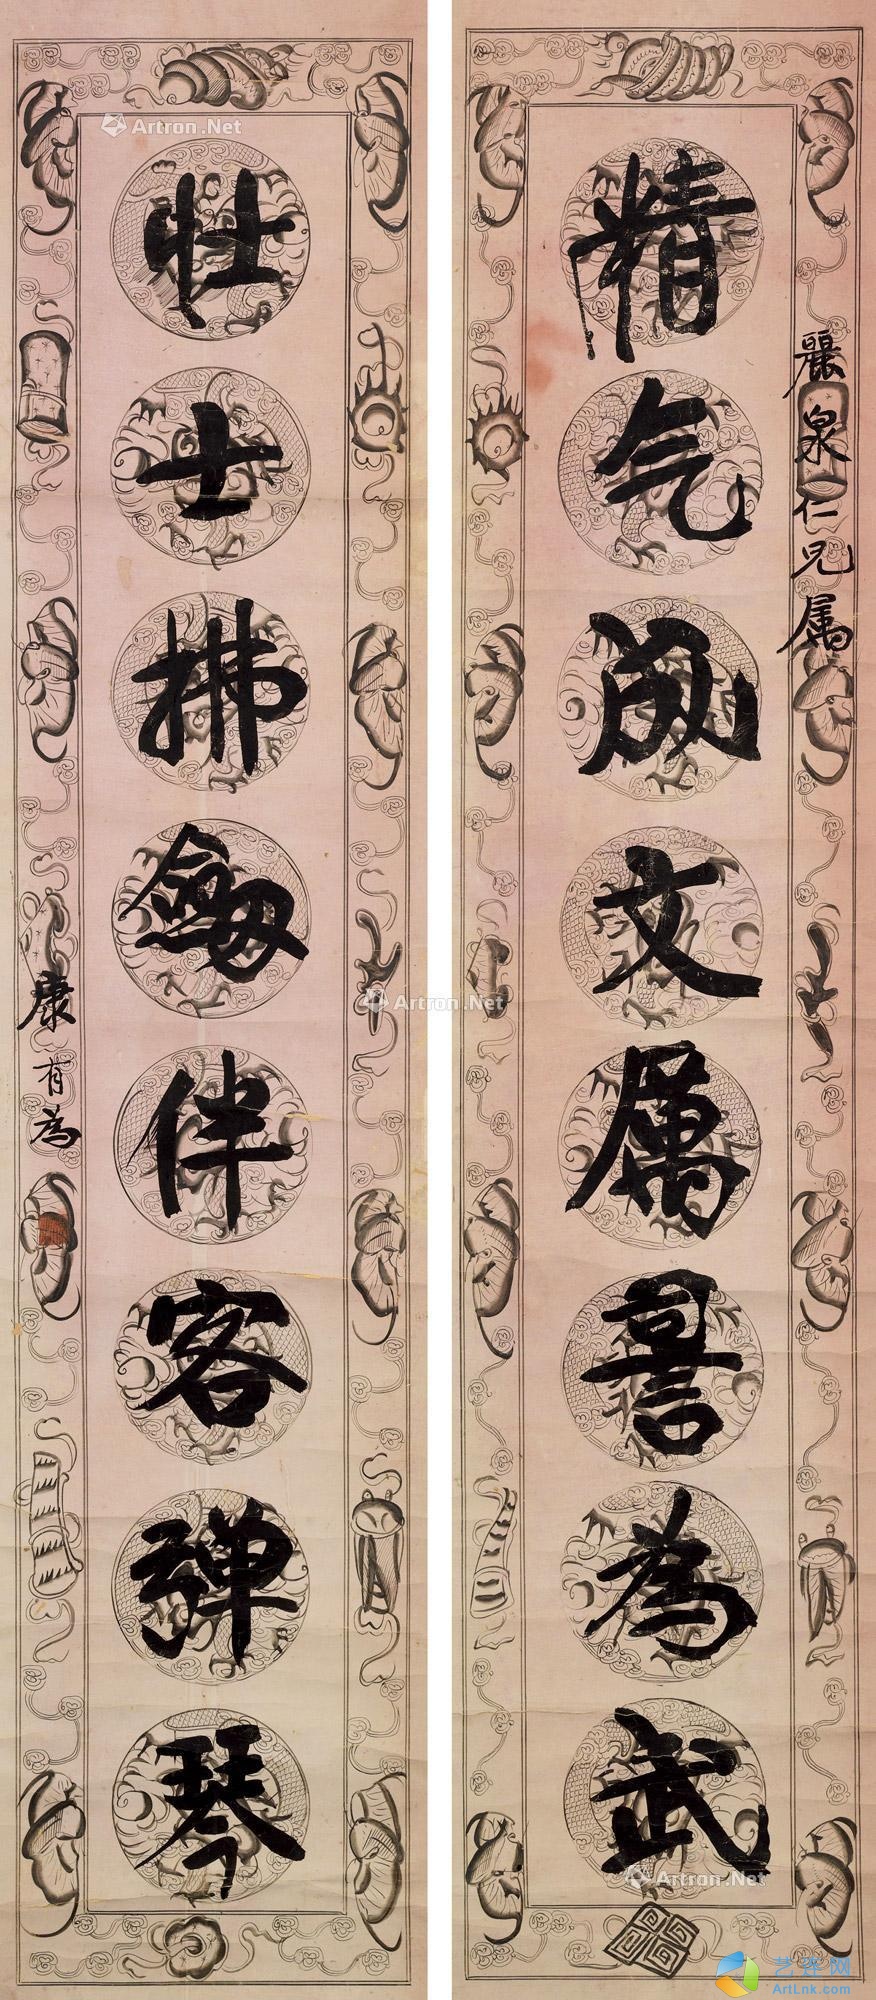 麗泉仁兄属
精气文属為武
壮士拂劔伴客弹琴
康有為
Artron.Net
Artron.Net
Artron.Net
艺评网
ArtLnk.com